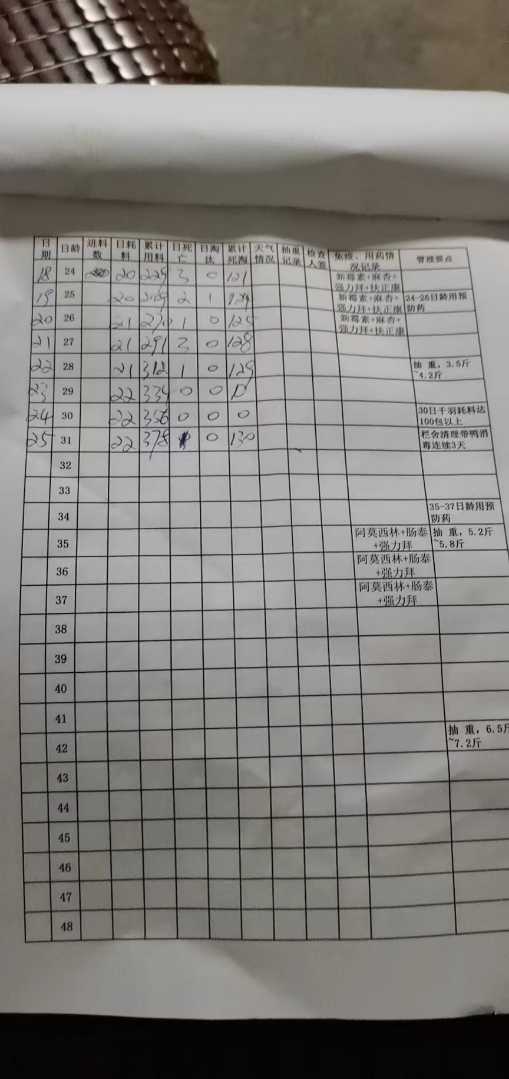 日期 日龄 进料数 日耗料 累计用料 日死亡 日淘汰 累计死淘 天气情况 抽重记录 检查人签 免疫、用药情况记录 管理要点
18 24 20 229 3 0 121 新霉素+麻杏+强力拜+扶正康
19 25 20 249 2 1 124 新霉素+麻杏+强力拜+扶正康 24-26日龄用预防药
20 26 21 270 1 0 125 新霉素+麻杏+强力拜+扶正康
21 27 21 291 3 0 128
22 28 21 312 1 0 129 抽重，3.5斤~4.2斤
23 29 22 334 0 0
24 30 22 356 0 0 0 30日千羽耗料达100包以上
25 31 22 378 0 130 栏舍清理带鸭消毒连续3天
32
33
34 35-37日龄用预防药
35 阿莫西林+肠泰+强力拜 抽重，5.2斤~5.8斤
36 阿莫西林+肠泰+强力拜
37 阿莫西林+肠泰+强力拜
38
39
40
41
42 抽重，6.5斤~7.2斤
43
44
45
46
47
48